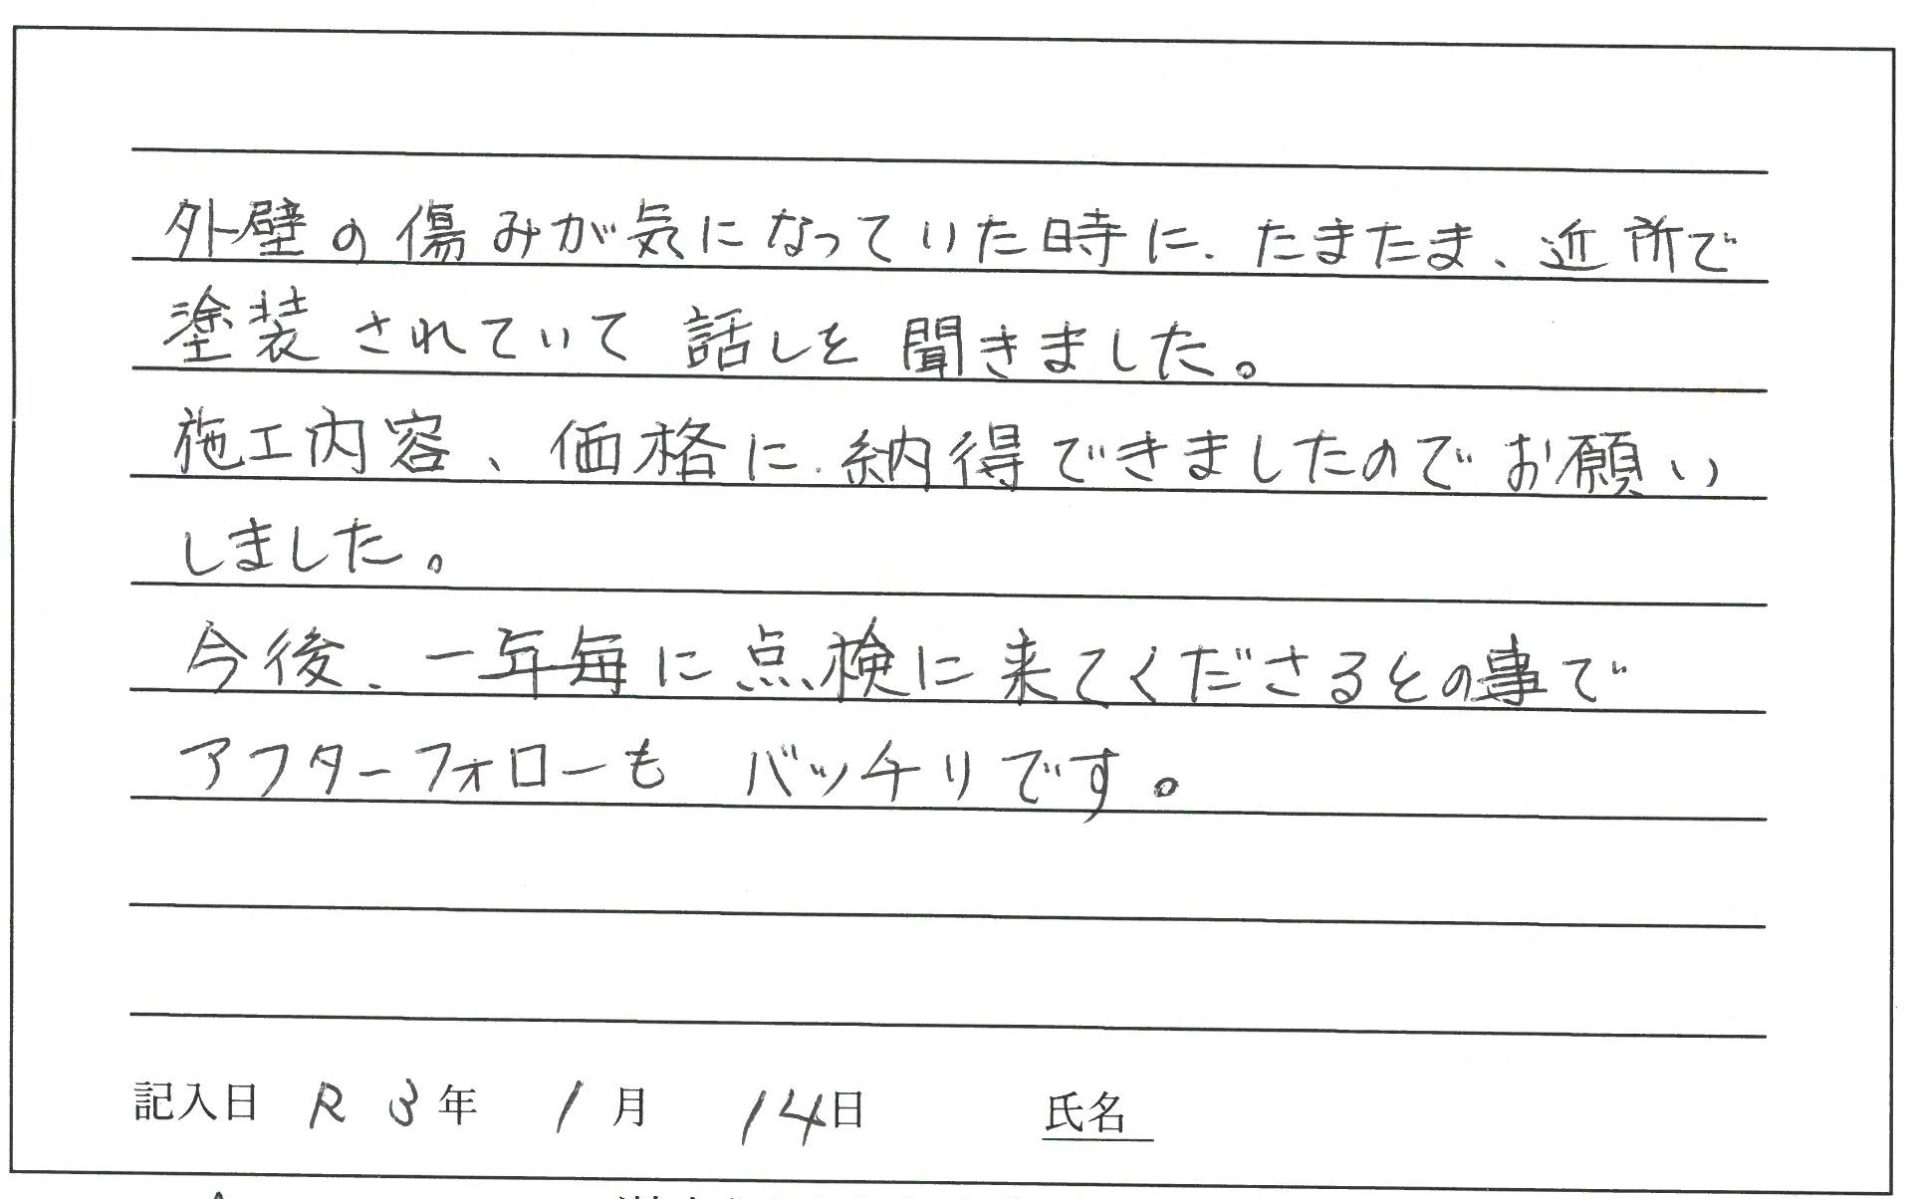 外壁の傷みが気になっていた時に、たまたま、近所で
塗装されていて 話しを 聞きました。
施工内容、価格に、納得できましたのでお願い
しました。
今後、一年毎に点検に来てくださるとの事で
アフターフォローも バッチリです。
記入日 R 3年 1月 14日 氏名